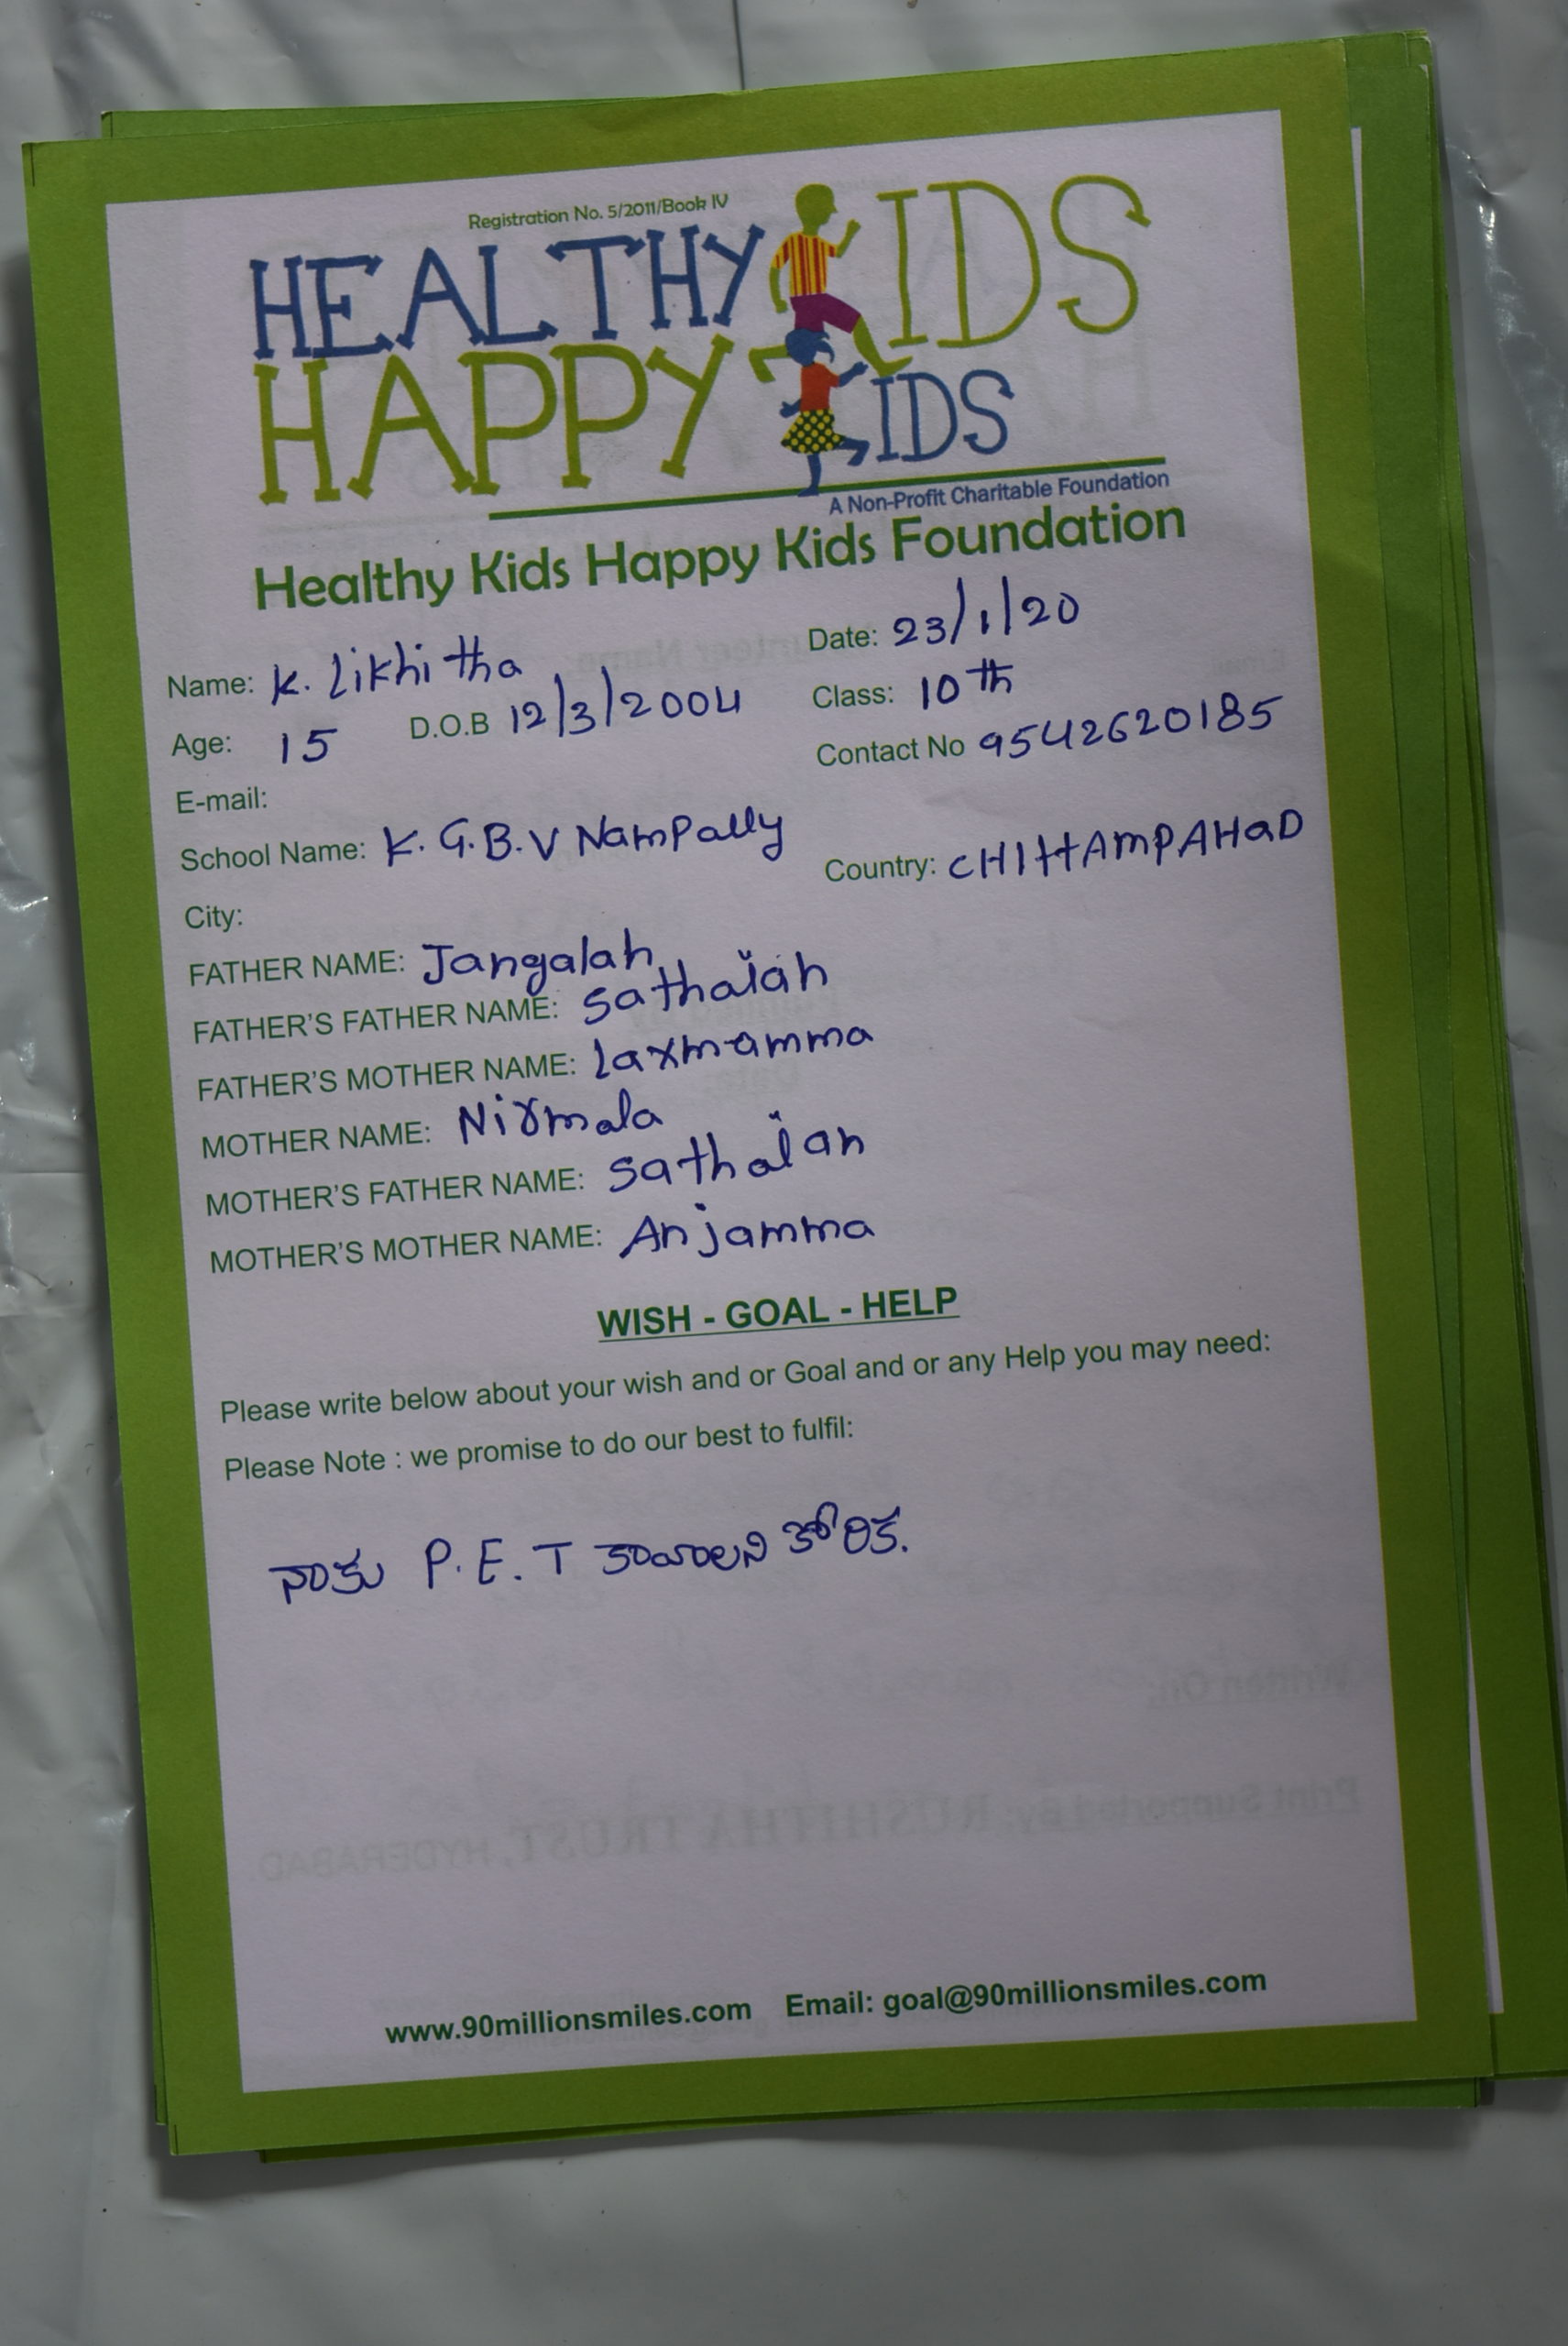 Registration No. 5/2011/Book IV
HEALTHY KIDS
HAPPY KIDS
A Non-Profit Charitable Foundation
Healthy Kids Happy Kids Foundation
Name: K. Likhitha Date: 23/1/20
Age: 15 D.O.B 12/3/2004 Class: 10th
Contact No 9542620185
E-mail:
School Name: K. G.B.V Nampally
City: Country: CHIttAmPAHaD
FATHER NAME: Jangalah
FATHER'S FATHER NAME: Sathaiah
FATHER'S MOTHER NAME: Laxmamma
MOTHER NAME: Nirmala
MOTHER'S FATHER NAME: Sathaiah
MOTHER'S MOTHER NAME: Anjamma
WISH - GOAL - HELP
Please write below about your wish and or Goal and or any Help you may need:
Please Note : we promise to do our best to fulfil:
నాకు P.E.T కావాలని కోరిక.
www.90millionsmiles.com Email: goal@90millionsmiles.com